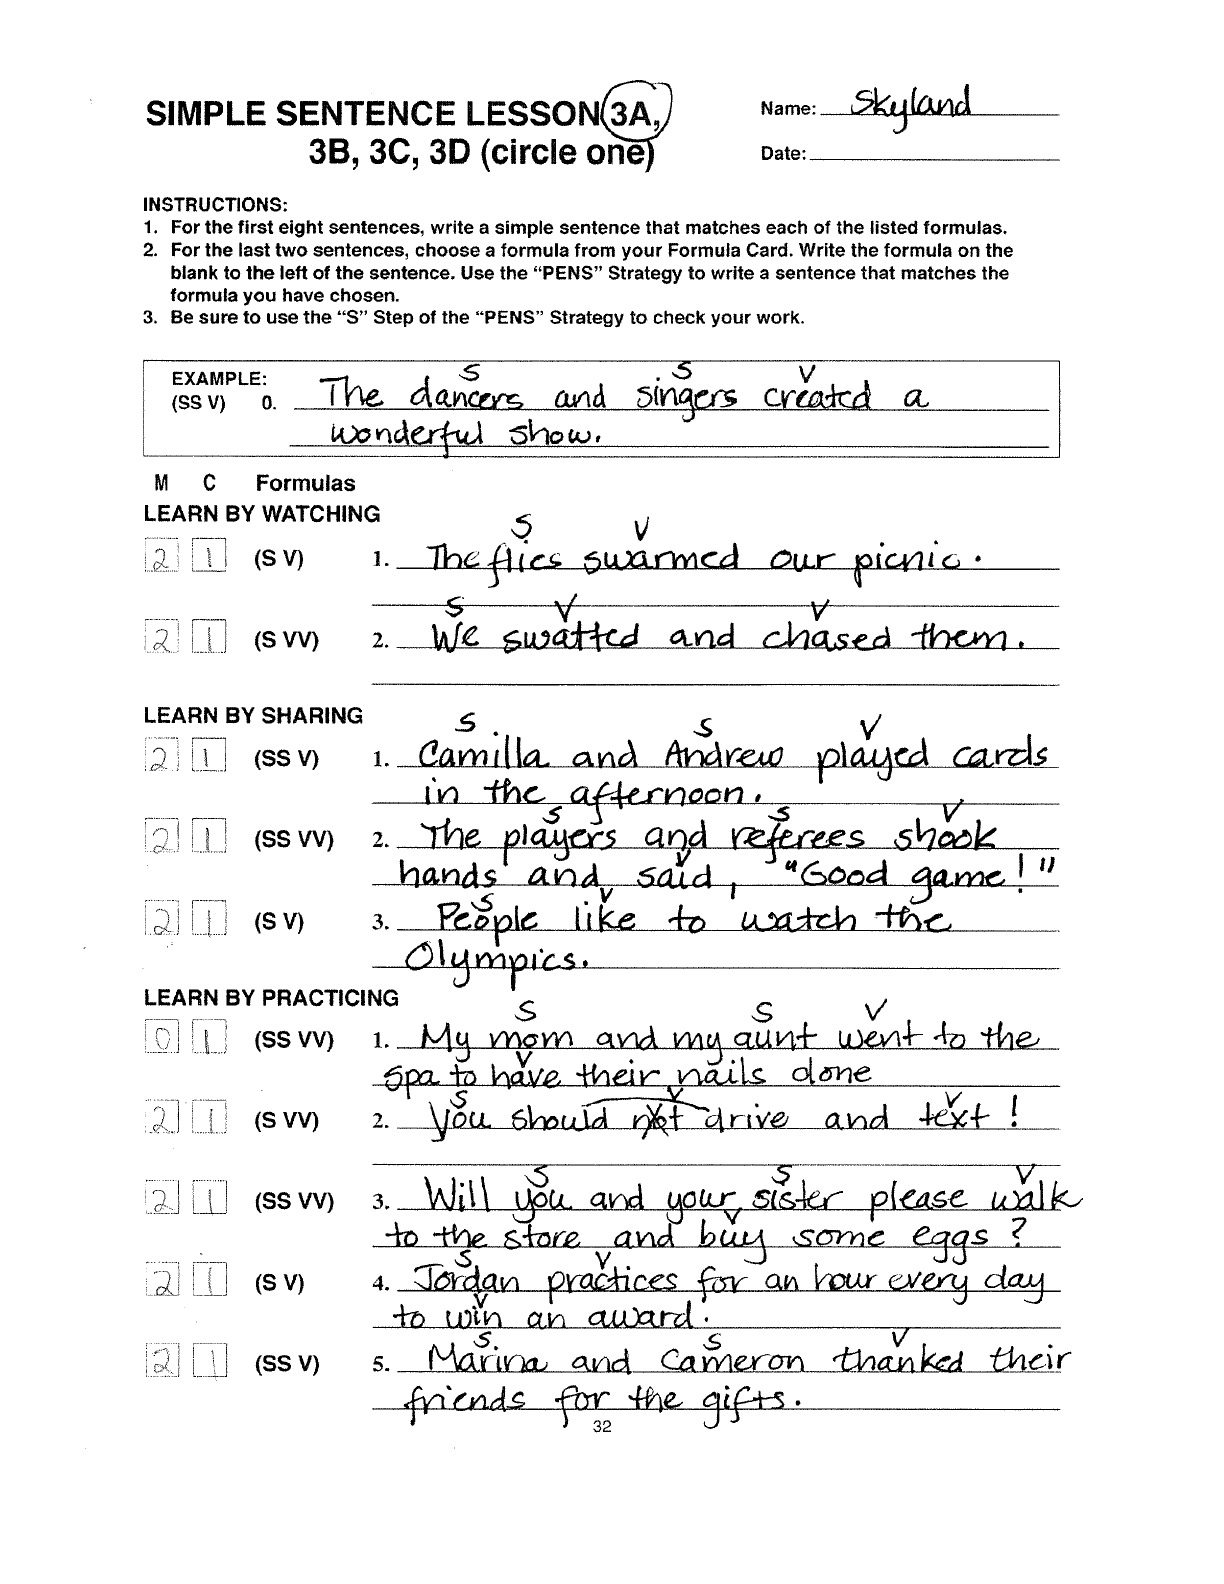 SIMPLE SENTENCE LESSON 3A,
3B, 3C, 3D (circle one)
Name: Skyland
Date:
INSTRUCTIONS:
1. For the first eight sentences, write a simple sentence that matches each of the listed formulas.
2. For the last two sentences, choose a formula from your Formula Card. Write the formula on the
blank to the left of the sentence. Use the “PENS” Strategy to write a sentence that matches the
formula you have chosen.
3. Be sure to use the “S” Step of the “PENS” Strategy to check your work.
EXAMPLE:
S S V
(SS V) 0. The dancers and singers created a
wonderful show.
M C Formulas
LEARN BY WATCHING
S V
2 1 (S V) 1. The flies swarmed our picnic.
S V V
2 1 (S VV) 2. We swatted and chased them.
LEARN BY SHARING
S S V
2 1 (SS V) 1. Camilla and Andrew played cards
in the afternoon.
S S V
2 1 (SS VV) 2. The players and referees shook
V
hands and said, "Good game!"
S V
2 1 (S V) 3. People like to watch the
Olympics.
LEARN BY PRACTICING
S S V
0 1 (SS VV) 1. My mom and my aunt went to the
V
spa to have their nails done
S V V
2 1 (S VV) 2. You should not drive and text!
S S V
2 1 (SS VV) 3. Will you and your sister please walk
V
to the store and buy some eggs?
S V
2 1 (S V) 4. Jordan practices for an hour every day
V
to win an award.
S S V
2 1 (SS V) 5. Marina and Cameron thanked their
friends for the gifts.
32